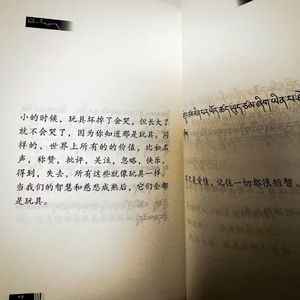 小的时候，玩具坏掉了会哭，但长大了
就不会哭了，因为你知道那是玩具。同
样的，世界上所有的的价值，比如名
声，称赞，批评，关注，忽略，快乐，
得到，失去，所有这些就像玩具一样。
当我们的智慧和慈悲成熟后，它们全都
是玩具。
是爱情，记住一切都很短暂。